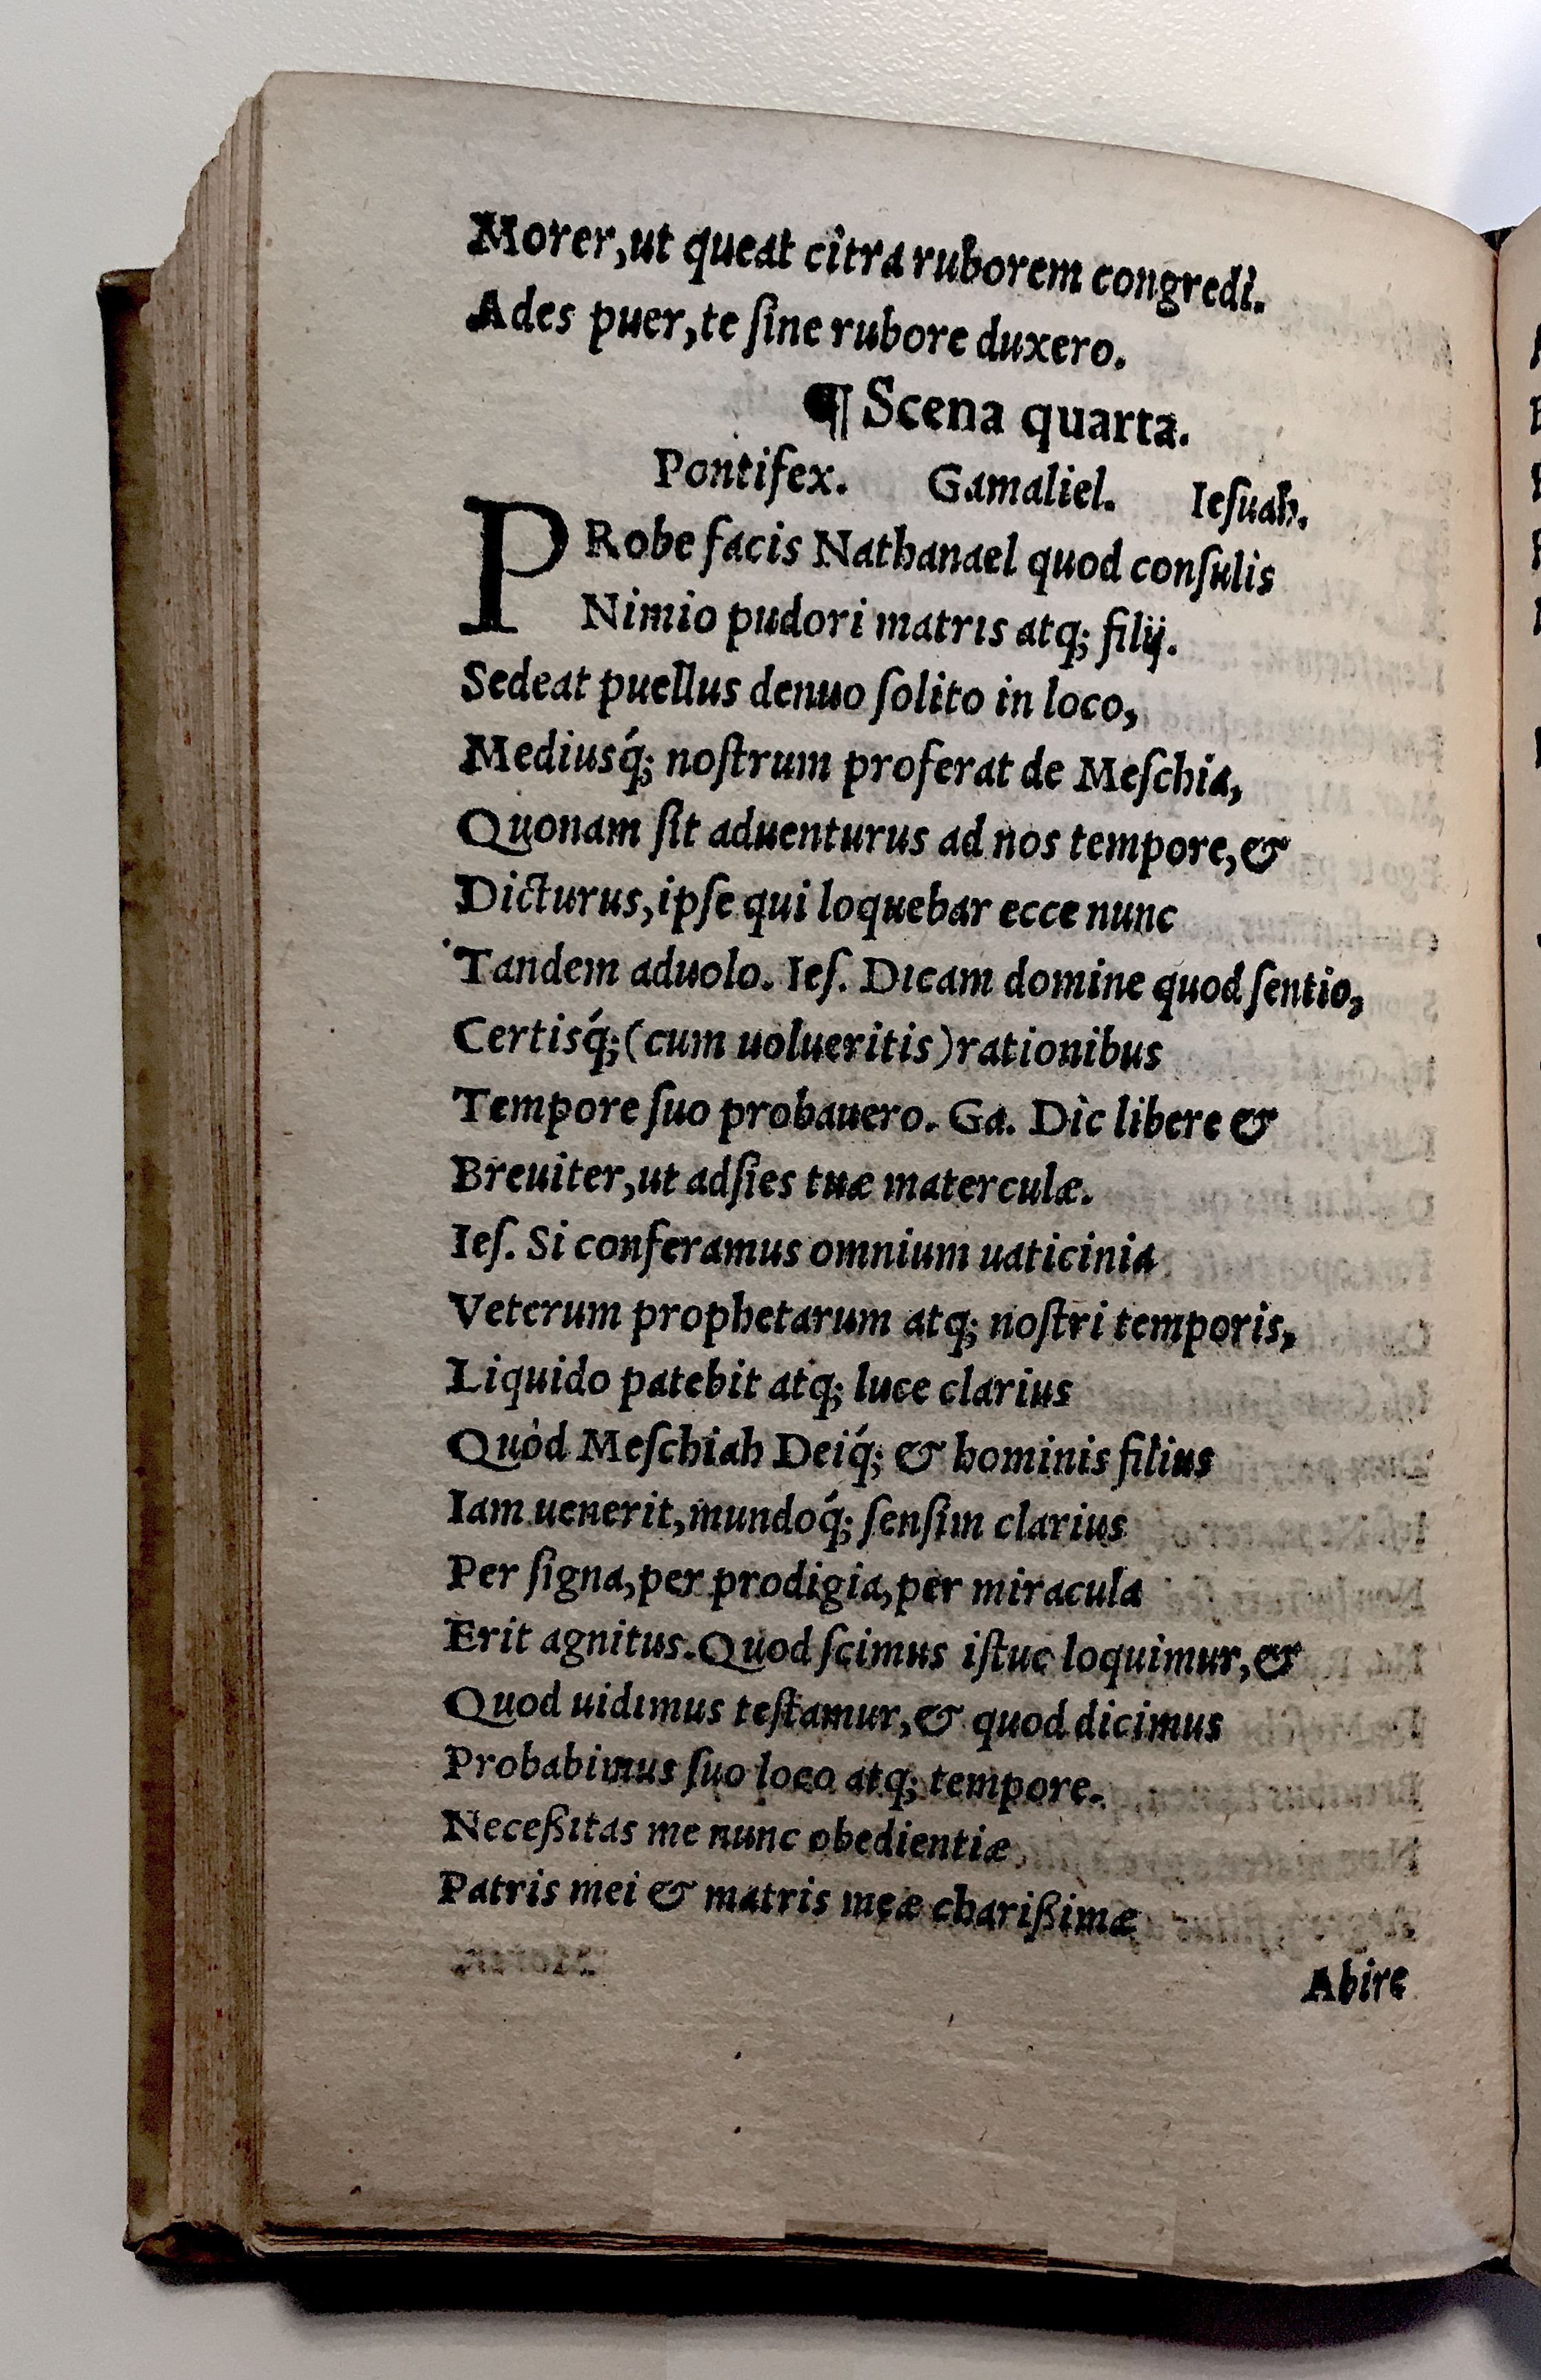 Morer,ut queat citra ruborem congredi.
Ades puer,te ſine rubore duxero.
¶ Scena quarta.
Pontifex. Gamaliel. Ieſuah.
PRobe facis Nathanael quod conſulis
Nimio pudori matris atq; filij.
Sedeat puellus denuo ſolito in loco,
Mediusq́; noſtrum proferat de Meſchia,
Quonam ſit aduenturus ad nos tempore,&
Dicturus,ipſe qui loquebar ecce nunc
Tandem aduolo. Ieſ. Dicam domine quod ſentio,
Certisq́;(cum uolueritis)rationibus
Tempore ſuo probauero. Ga. Dic libere &
Breuiter,ut adſies tuæ materculæ.
Ieſ. Si conferamus omnium uaticinia
Veterum prophetarum atq; noſtri temporis,
Liquido patebit atq; luce clarius
Quòd Meſchiah Deiq́; & hominis filius
Iam uenerit,mundoq́; ſenſim clarius
Per ſigna,per prodigia,per miracula
Erit agnitus.Quod ſcimus iſtuc loquimur,&
Quod uidimus teſtamur,& quod dicimus
Probabimus ſuo loco atq; tempore.
Neceßitas me nunc obedientiæ
Patris mei & matris meæ charißimæ
Abire